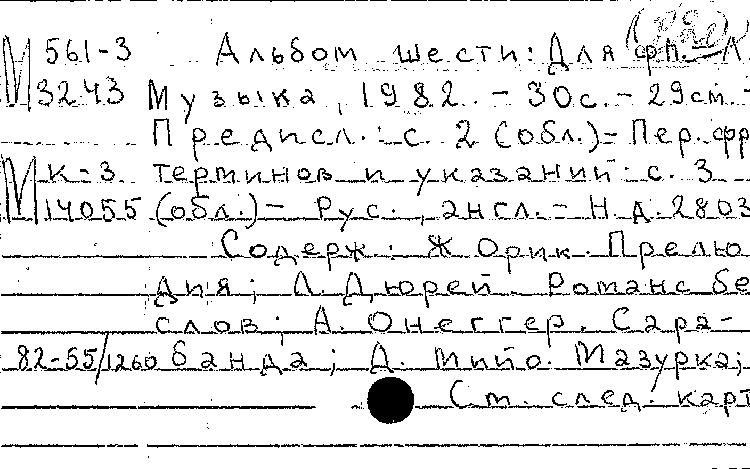 М 561-3 Альбом шести: Для фп. - Л.
3243 Музыка, 1982. - 30с. - 29см -
Предисл.: с. 2 (обл.) - Пер. фр
М К-3 терминов и указаний: с. 3
14055 (обл.) - Рус., англ. - Н.д. 2803
Содерж.: Ж Орик. Прелю
дия; Л. Дюрей. Романс бе
слов; А. Онеггер. Сара-
82-55/1260 банда; Д. Мийо. Мазурка;
См. след. карт